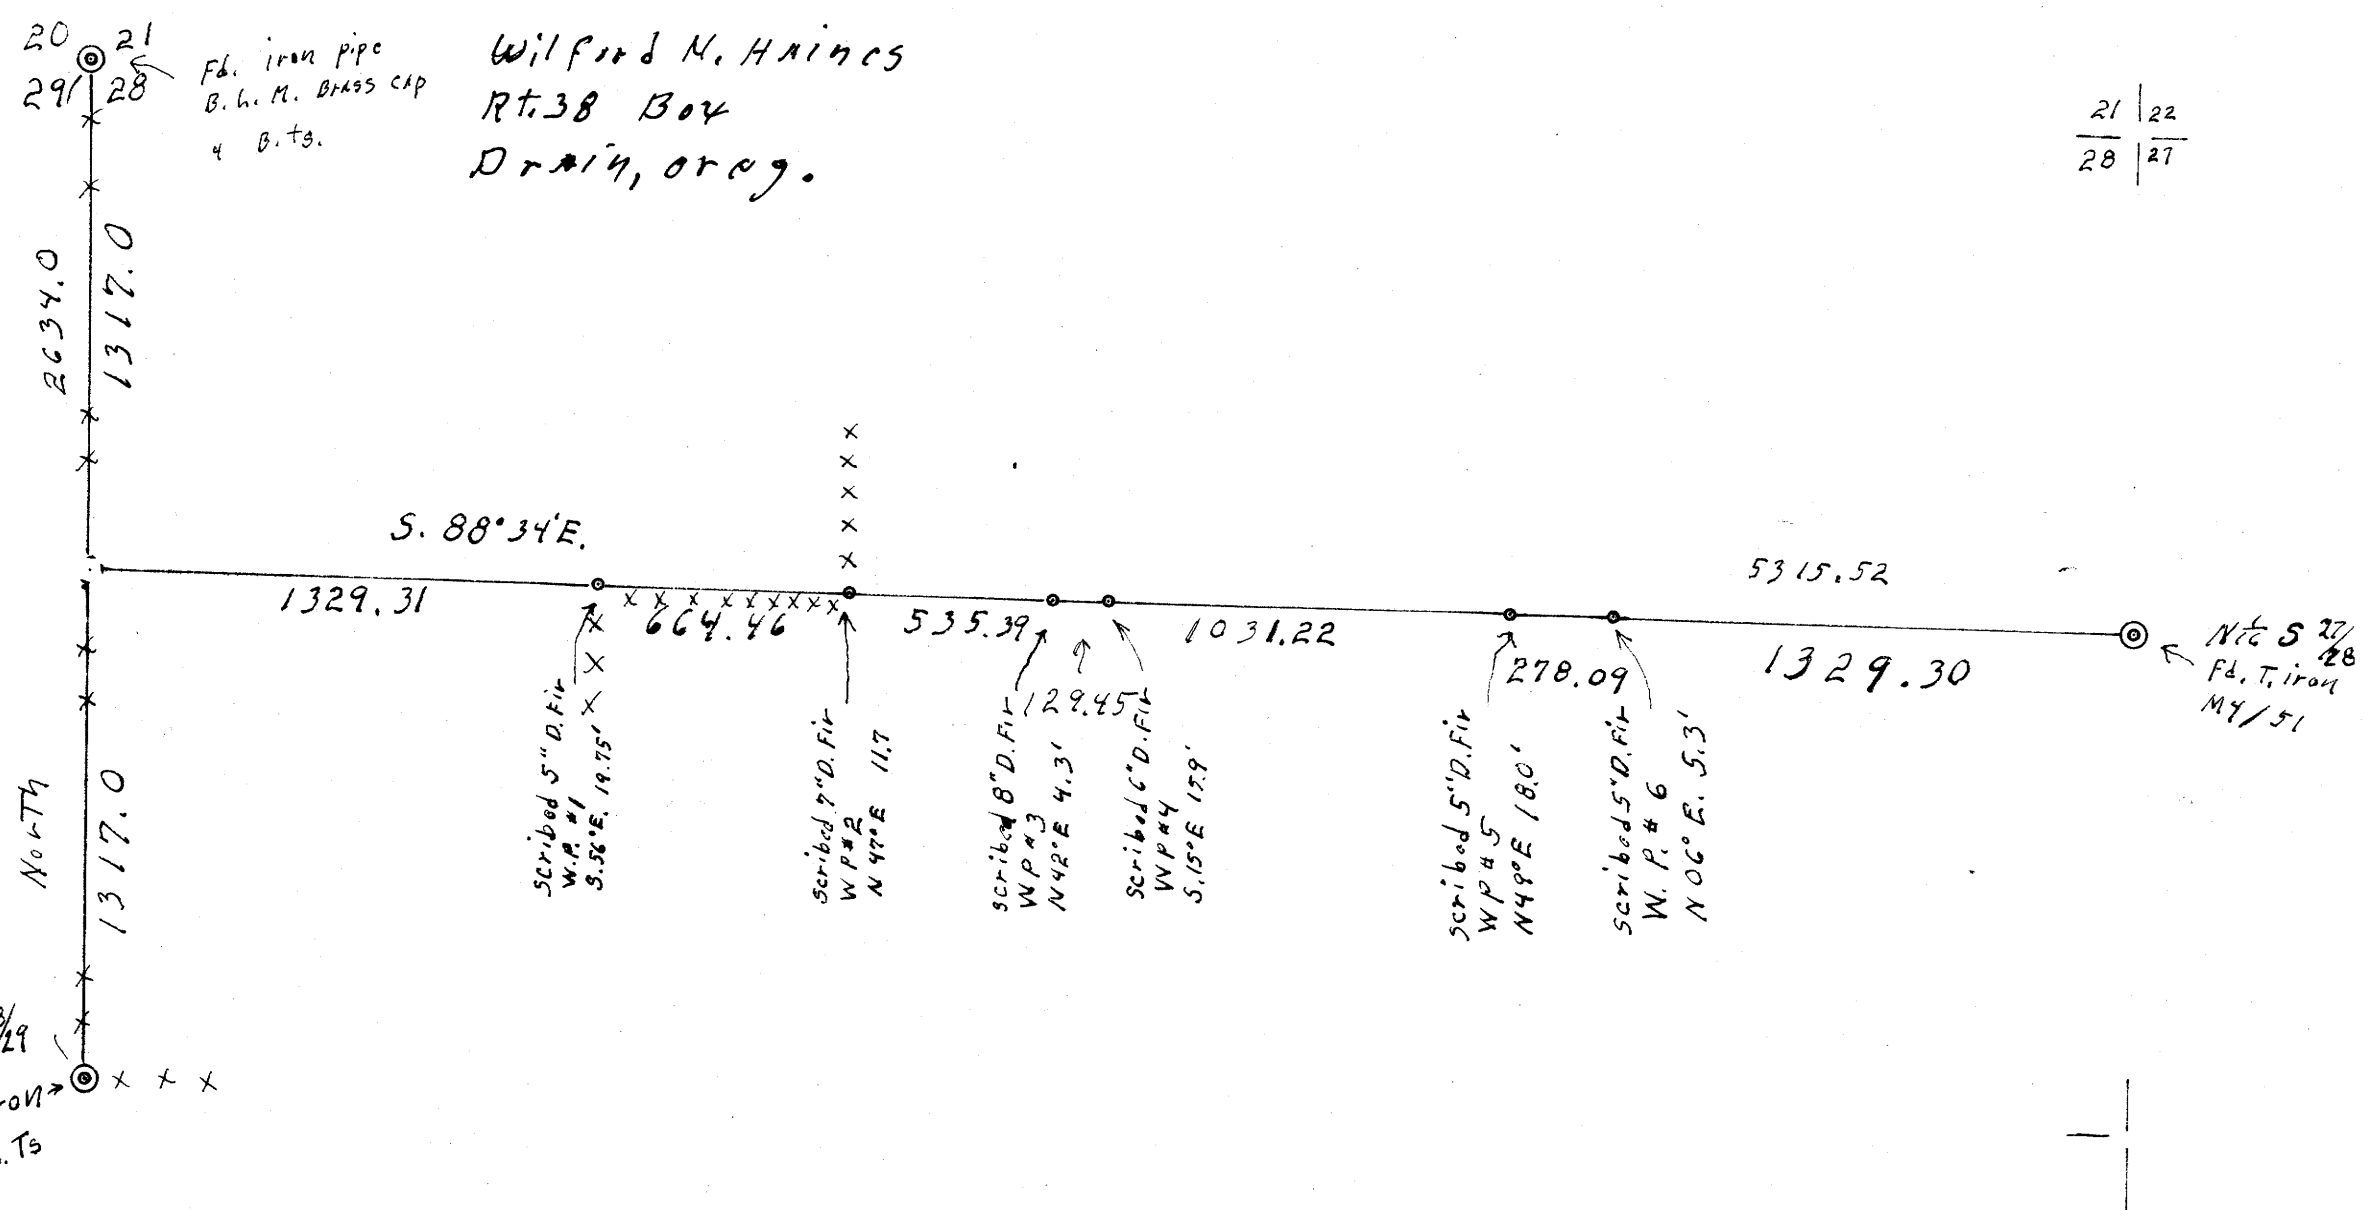 20 21
29 28
Fd. iron pipe
B.L.M. Brass cap
4 B.ts.
Wilford N. Haines
Rt.38 Box
Drain, oreg.
21 22
28 27
2634.0
1317.0
S. 88°34'E.
1329.31
664.46
535.39
129.45
1031.22
278.09
5315.52
1329.30
N 1/16 S 27/28
Fd. T. iron
M4/51
scribed 5" D.Fir
W.P. #1
S.56°E. 19.75'
scribed 7" D.Fir
WP #2
N 47°E 11.7
scribed 8" D.Fir
WP #3
N42°E 4.3'
scribed 6" D.Fir
WP #4
S.15°E 17.9'
scribed 5" D.Fir
WP #5
N49°E 18.0'
scribed 5" D.Fir
W. P. # 6
N 06° E. 5.3'
North
1317.0
/29
ron
. Ts